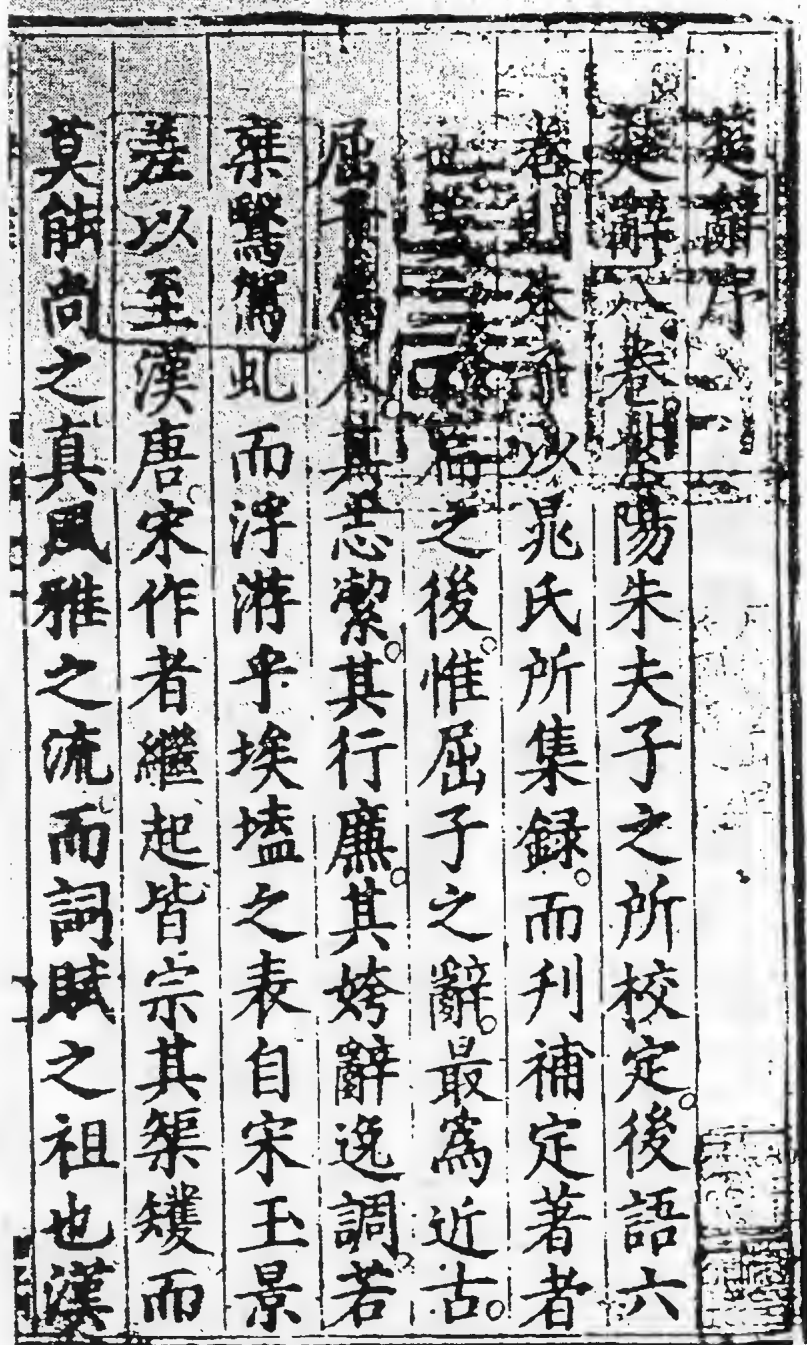 楚辭序
楚辭八卷紫陽朱夫子之所校定後語六
卷朱子以晁氏所集録而刋補定著者
也三百篇之後惟屈子之辭最爲近古
屈子爲人其志潔其行廉其姱辭逸調若
椉鷖駕虬而浮游乎埃壒之表自宋玉景
差以至漢唐宋作者繼起皆宗其榘矱而
莫能尚之真風雅之流而詞賦之祖也漢